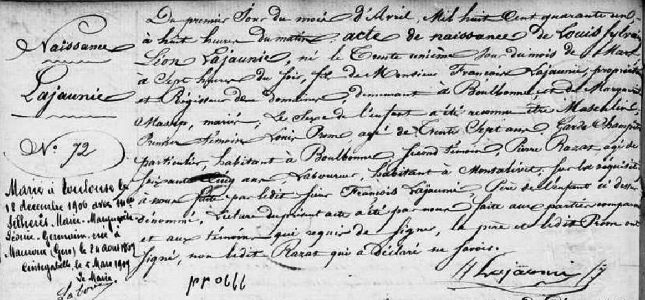 Naissance
Lajaunie
N° 72
Marié à Toulouse le
18 décembre 1906 avec
Marie Marguerite
Germain née à
(Gers) le 24 août
Cintegabelle, le 2 Mars 1907
Le Maire
Du premier Jour du mois d'Avril, Mil huit Cent quarante un
à huit heures du matin, acte de naissance de Louis Sylvain
Léon Lajaunie, né le Trente unième Jour du mois de Mars
à Sept heures du Soir, fils de Monsieur François Lajaunie, propriétaire
et Régisseur de domaine, demeurant à Boulbonne et de Marguerite
mariés, Le Sexe de l'enfant a été reconnu être Masculin,
Premier témoin, Louis agé de trente Sept ans, Garde Champêtre
particulier, habitant à Boulbonne, Second témoin, Pierre Razat agé de
Soixante Cinq ans Laboureur, habitant à Montalivet, Sur la réquisition
à nous faite par ledit Sieur François Lajaunie Père de l'enfant ci dessus
dénommé, Lecture du présent acte a été par nous faite aux parties comparantes
et aux témoins que requis de Signer, le père et ledit ont
Signé, non ledit Razat qui a déclaré ne Savoir.
Lajaunie